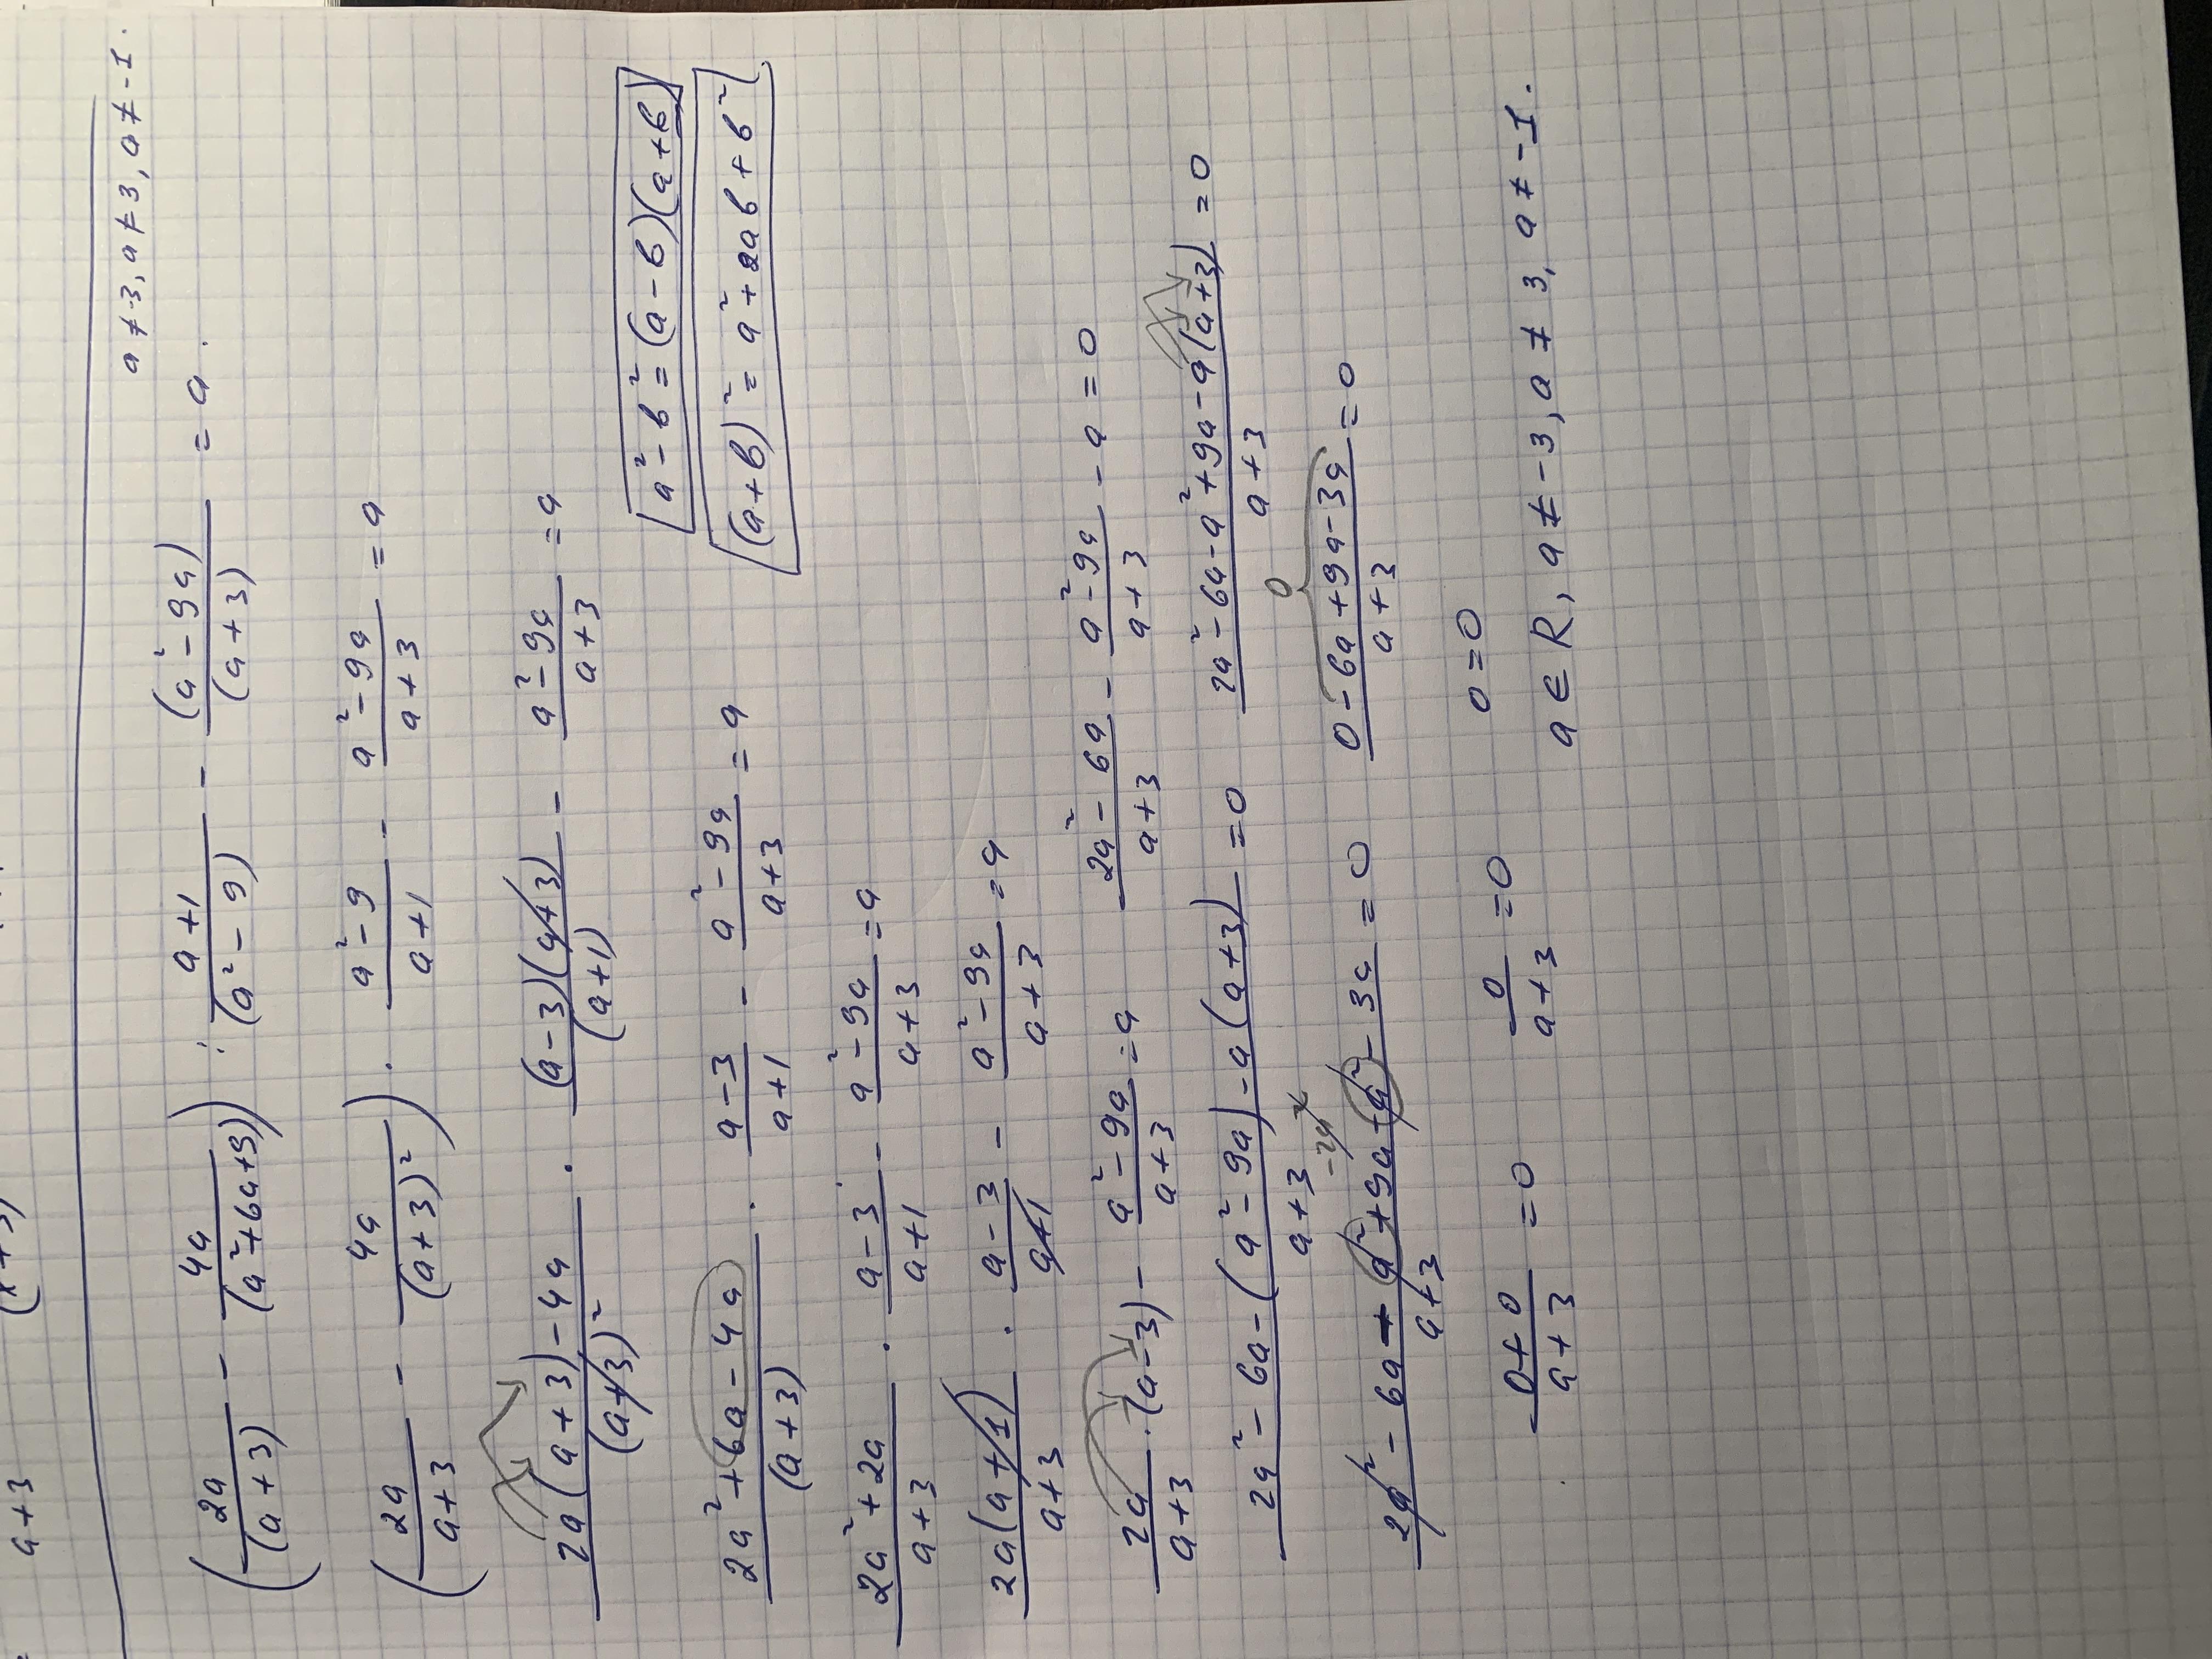 a+3
a ≠ -3, a ≠ 3, a ≠ -1.
(2a/(a+3) - 4a/(a²+6a+9)) : (a+1)/(a²-9) - (a²-9a)/(a+3) = a.
(2a/(a+3) - 4a/(a+3)²) · (a²-9)/(a+1) - (a²-9a)/(a+3) = a
(2a(a+3)-4a)/(a+3)² · (a-3)(a+3)/(a+1) - (a²-9a)/(a+3) = a
a²-в²=(a-в)(a+в)
(a+в)²=a²+2aв+в²
(2a²+6a-4a)/(a+3) · (a-3)/(a+1) - (a²-9a)/(a+3) = a
(2a²+2a)/(a+3) · (a-3)/(a+1) - (a²-9a)/(a+3) = a
2a(a+1)/(a+3) · (a-3)/(a+1) - (a²-9a)/(a+3) = a
2a/(a+3) · (a-3) - (a²-9a)/(a+3) = a (2a²-6a)/(a+3) - (a²-9a)/(a+3) - a = 0
(2a²-6a-(a²-9a)-a(a+3))/(a+3) = 0 (2a²-6a-a²+9a-a(a+3))/(a+3) = 0
-2a²
0
(2a²-6a-a²+9a-a²-3a)/(a+3) = 0 (0-6a+9a-3a)/(a+3) = 0
(0+0)/(a+3) = 0 0/(a+3) = 0 0=0
a ∈ R, a ≠ -3, a ≠ 3, a ≠ -1.